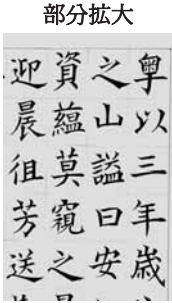 部分拡大
粤以三年歳
之山謚曰安
資蘊莫窺之
迎晨徂芳送